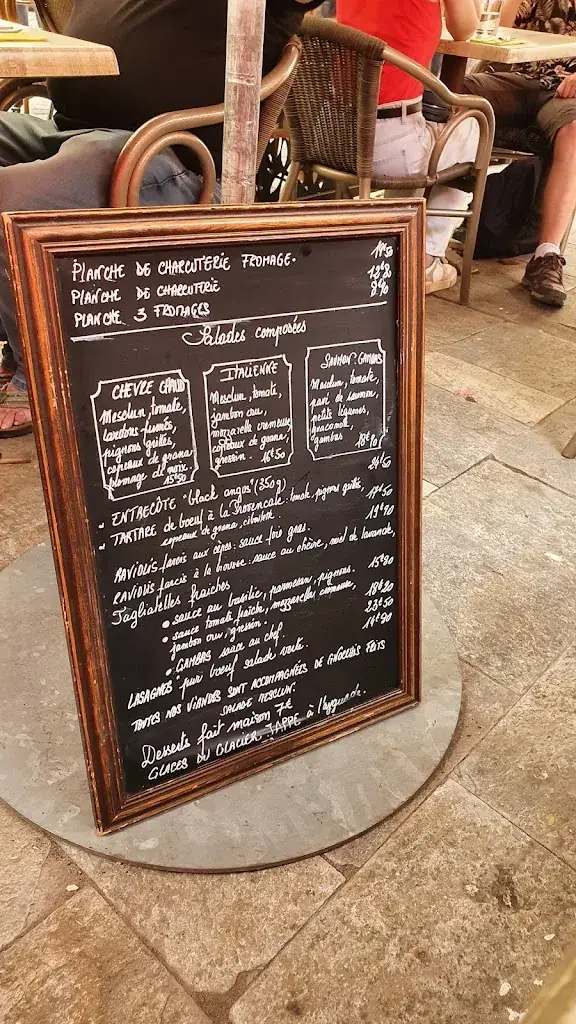 PLANCHE DE CHARCUTERIE FROMAGE.
PLANCHE DE CHARCUTERIE
PLANCHE 3 FROMAGES
Salades composées
CHEVRE CHAUD
Mesclun, tomate,
lardons fumés,
pignons grillés,
copeaux de grana
fromage de noix.
15'50
ITALIENNE
Mesclun, tomate,
jambon cru,
mozzarelle cremeuse,
copeaux de grana,
gressin. 16'50
SAUMON. GAMBAS
Mesclun, tomate,
pavé de saumon,
petits légumes,
gambas
- ENTRECÔTE "black angus" (350g)
- TARTARE de boeuf à la Provencale: tomate, pignons grillés, 17'50
copeaux de grana, ciboulette. 19'90
RAVIOLIS farcis aux cèpes: sauce foie gras.
RAVIOLIS farcis à la : sauce au chèvre, miel de lavande,
Tagliatelles fraiches 15'90
• sauce au basilic, parmesan, pignons.
• sauce tomate fraîche, mozzarella cremeuse, 18'20
jambon cru, gressin. 23'50
• GAMBAS sauce au chef. 14'90
LASAGNES "pur boeuf salade verte.
TOUTES NOS VIANDES SONT ACCOMPAGNÉES DE GNOCCHIS FRITS
SALADE MESCLUN.
Desserts fait maison 7€
GLACES DU GLACIER à